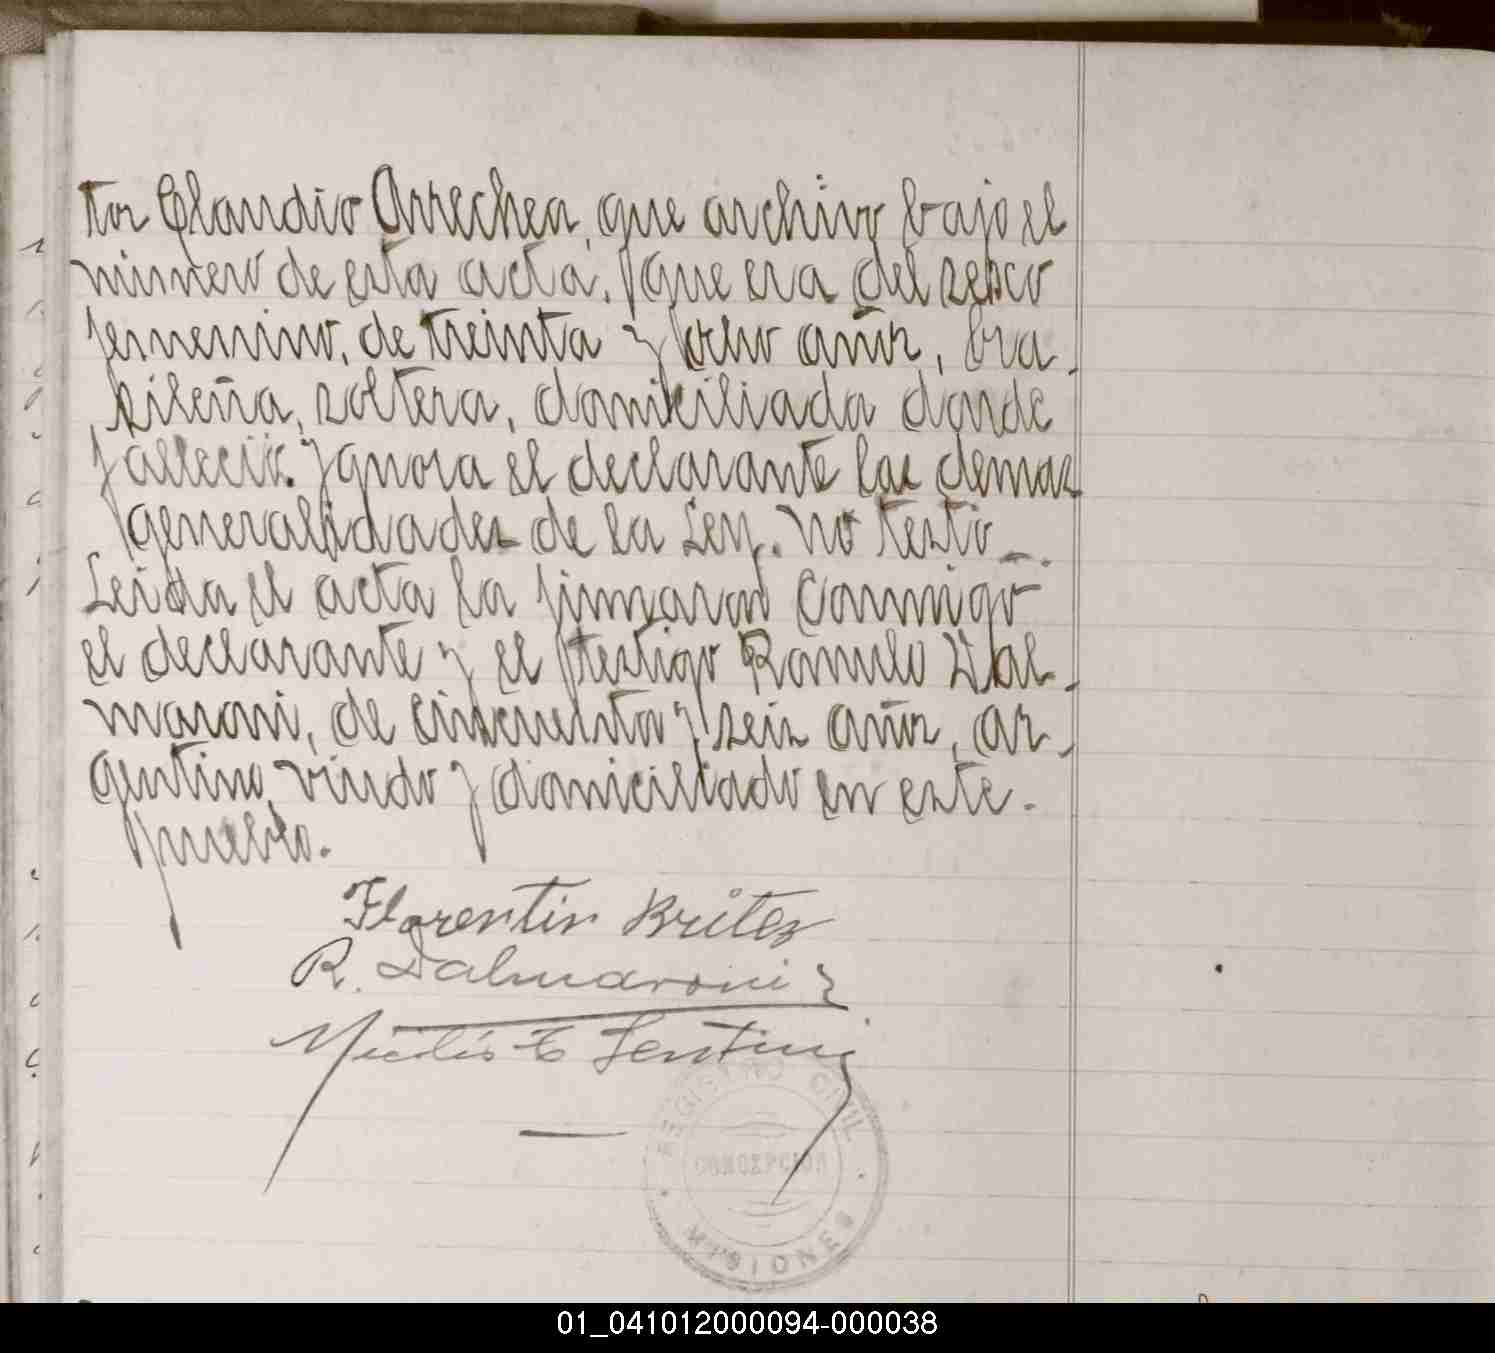 tor Claudio Arrechea, que archivo bajo el
número de esta acta. Que era del sexo
femenino, de treinta y ocho años, bra-
sileña, soltera, domiciliada donde
falleció. Ignora el declarante las demas
generalidades de la Ley. No testó _.
Leida el acta la firmaron conmigo
el declarante y el testigo Romulo Dal-
maroni, de cincuenta y seis años, ar-
gentino, viudo y domiciliado en este.
pueblo.
Florentin Britez
R. Dalmaroni
REGISTRO CIVIL
CONCEPCION
MISIONES
01_041012000094-000038